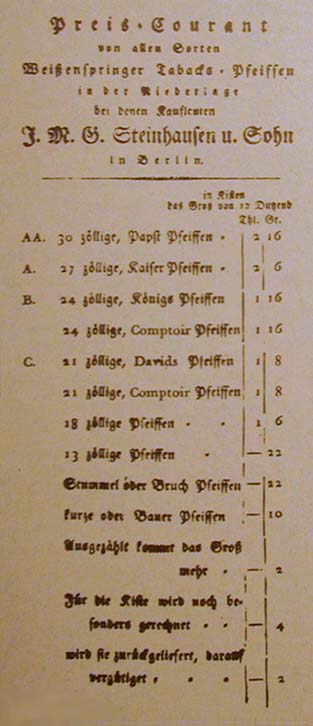 Preis-Courant
von allen Sorten
Weißenspringer Tabacks-Pfeiffen
in der Niederlage
bei denen Kaufleuten
J. M. G. Steinhausen u. Sohn
in Berlin.
in Kisten
das Groß von 12 Dutzend
Thl. Gr.
AA. 30 zöllige, Papst Pfeiffen - 2 16
A. 27 zöllige, Kaiser Pfeiffen - 2 6
B. 24 zöllige, Königs Pfeiffen 1 16
24 zöllige, Comptoir Pfeiffen 1 16
C. 21 zöllige, Davids Pfeiffen 1 8
21 zöllige, Comptoir Pfeiffen 1 8
18 zöllige Pfeiffen - - 1 6
13 zöllige Pfeiffen - — 22
Stummel oder Bruch Pfeiffen — 22
kurze oder Bauer Pfeiffen — 10
Ausgezählt kommt das Groß
mehr - — 2
Für die Kiste wird noch be-
sonders gerechnet - - — 4
wird sie zurückgeliefert, darauf
vergütiget - - — 2